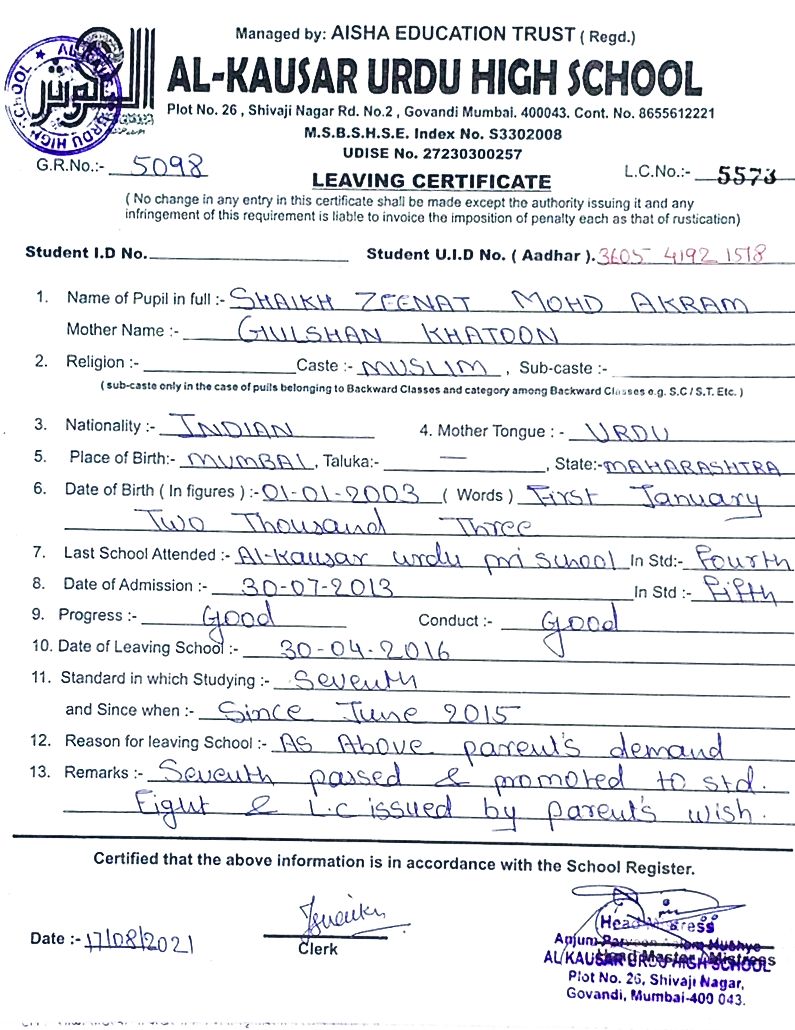 Managed by: AISHA EDUCATION TRUST ( Regd.)
الكوثر
AL-KAUSAR URDU HIGH SCHOOL
Plot No. 26 , Shivaji Nagar Rd. No.2 , Govandi Mumbai. 400043. Cont. No. 8655612221
M.S.B.S.H.S.E. Index No. S3302008
UDISE No. 27230300257
G.R.No.:- 5098
L.C.No.:- 5573
LEAVING CERTIFICATE
( No change in any entry in this certificate shall be made except the authority issuing it and any
infringement of this requirement is liable to invoice the imposition of penalty each as that of rustication)
Student I.D No. Student U.I.D No. ( Aadhar ). 3605 4192 1518
1. Name of Pupil in full :- SHAIKH ZEENAT MOHD AKRAM
Mother Name :- GULSHAN KHATOON
2. Religion :- Caste :- MUSLIM , Sub-caste :-
( sub-caste only in the case of puils belonging to Backward Classes and category among Backward Classes e.g. S.C / S.T. Etc. )
3. Nationality :- INDIAN 4. Mother Tongue : - URDU
5. Place of Birth:- MUMBAI, Taluka:- — , State:- MAHARASHTRA
6. Date of Birth ( In figures ) :- 01-01-2003 ( Words ) First January
Two Thousand Three
7. Last School Attended :- Al-Kausar urdu pri school In Std:- fourth
8. Date of Admission :- 30-07-2013 In Std :- fifth
9. Progress :- Good Conduct :- Good
10. Date of Leaving School :- 30-04-2016
11. Standard in which Studying :- Seventh
and Since when :- Since June 2015
12. Reason for leaving School :- As Above parent's demand
13. Remarks :- Seventh passed & promoted to std.
Eight & L.C issued by parent's wish.
Certified that the above information is in accordance with the School Register.
Date :- 17/08/2021
Clerk
Head Mistress
Anjum Parveen
Head Master / Mistress
AL KAUSAR URDU HIGH SCHOOL
Plot No. 26, Shivaji Nagar,
Govandi, Mumbai-400 043.